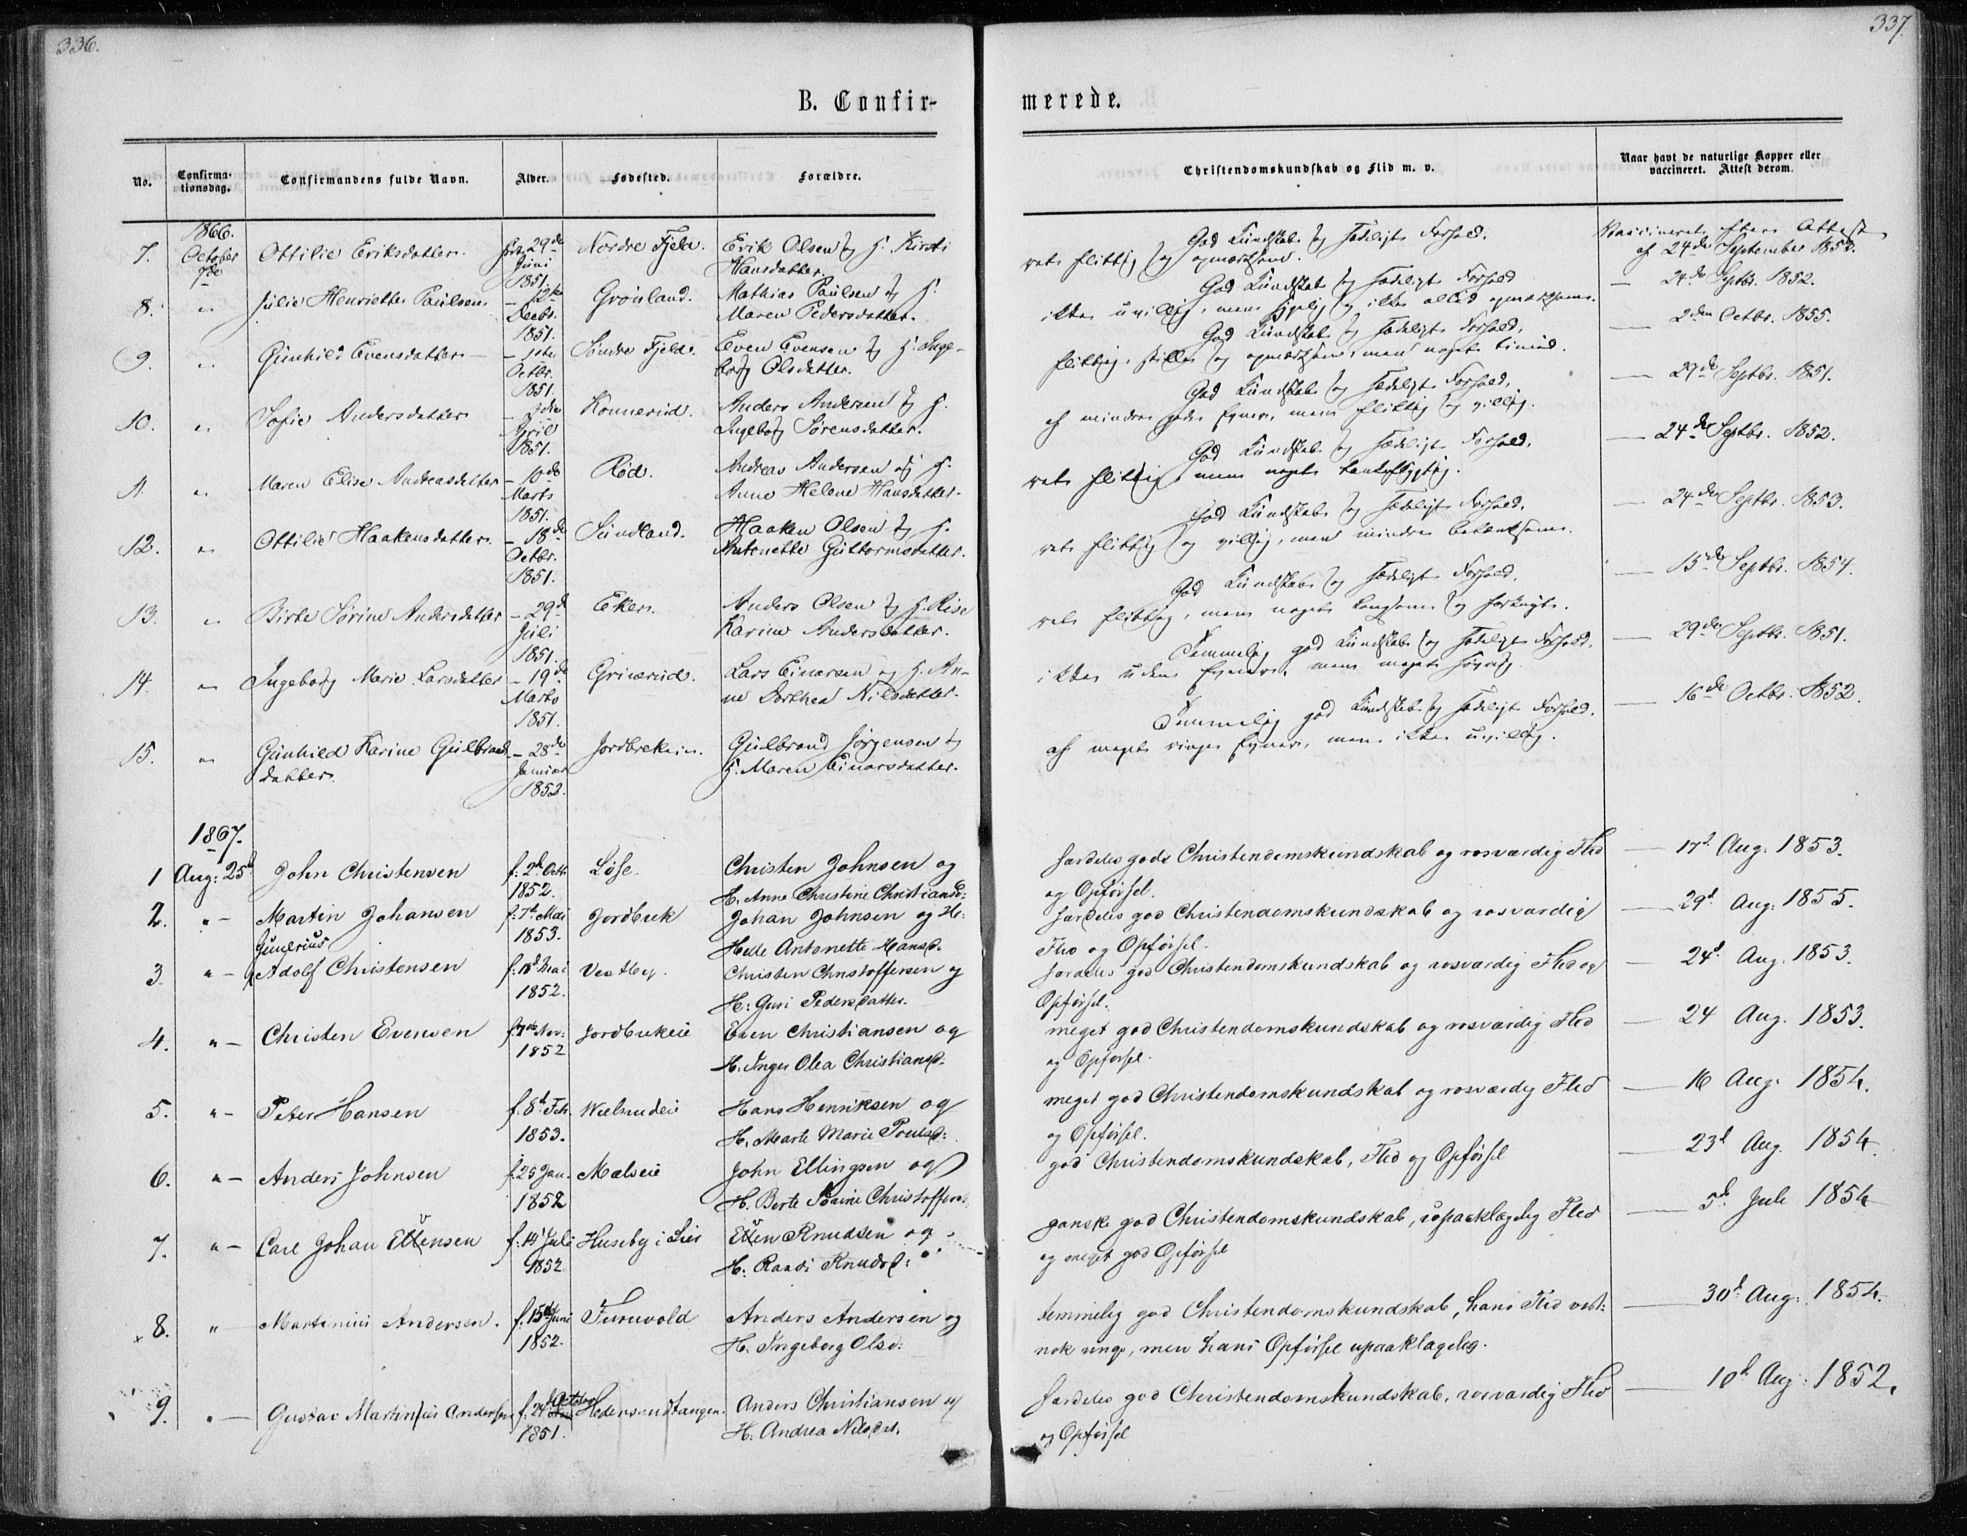 336.
337.
B. Confir-
merede.
No.
Confirma-
tionsdag.
Confirmandens fulde Navn.
Alder.
Fødested.
Forældre.
Christendomskundskab og Flid m. v.
Naar havt de naturlige Kopper eller
vaccineret. Attest derom.
1866.
7. October Ottilie Eriksdatter. 29de Nordre Fjeld. Erik Olsen og H. Kirsti God Kundskab og sædeligt Forhold. Vaccineret efter Attest
7de Juni 1851. Hansdatter. ret flittig og opmærksom. af 24de September 1852.
8. " Julie Henriette Paulsen – Decbr. 1851. Grønland. Mathias Paulsen og H. God Kundskab og sædeligt Forhold — 24de Septbr. 1852.
Maren Pedersdatter. ikke uvillig, men og ikke altid opmærksom.
9. " Gunhild Evensdatter – Octbr. 1851. Søndre Fjeld. Even Evensen og H. Inge- God Kundskab og sædeligt Forhold. — 2den Octbr. 1855.
borg Olsdatter. flittig, stille og opmærksom, men noget timid.
10. " Sofie Andersdatter – April 1851. Konnerud. Anders Andersen og H. God Kundskab og sædeligt Forhold. — 29de Septbr. 1851.
Ingeborg Sørensdatter. af mindre gode Evner, men flittig og villig.
11. " Maren Elise Andreasdatter – 10de Marts 1851. Rød. Andreas Andersen og H. God Kundskab og sædeligt Forhold. — 24de Septbr. 1852.
Anne Helene Hansdatter. ret flittig, men noget
12. " Ottilie Haakensdatter. – 18de Octbr. 1851. Sundland. Haaken Olsen og H. God Kundskab og sædeligt Forhold. — 24de Septbr. 1853.
Antonette Guttormsdatter. ret flittig og villig, men mindre betænksom.
13. " Birte Sørine Andersdatter – 29de Juli 1851. Eker. Anders Olsen og H. Rise God Kundskab og sædeligt Forhold. — 15de Septbr. 1854.
Karine Andersdatter. ret flittig, men noget langsom og
14. " Ingeborg Marie Larsdatter – 19de Marts 1851. Grinerud. Lars Einarsen og H. An- Temmelig god Kundskab og sædeligt Forhold. — 29de Septbr. 1851.
ne Dorthea Nilsdatter. ikke uden Evner, men meget
15. " Gunhild Karine Gulbrands- – 28de Januar 1852. Jordbrekeie. Gulbrand Jørgensen og Temmelig god Kundskab og sædeligt Forhold. — 16de Octbr. 1852.
datter. H. Maren Einarsdatter. af meget ringe Evner, men ikke uvillig.
1867.
1 Aug: 25d John Christensen f. 2d Octb 1852. Løse. Christen Johnsen og særdeles gode Christendomskundskab og rosværdig Flid — 17d Aug. 1853.
H. Anne Christine Christiansd: og Opførsel.
2. " – Martin Johansen f. 7d Mai 1853. Jordbrek Johan Johnsen og H: særdeles god Christendomskundskab og rosværdig — 29d Aug. 1855.
Helle Antonette Hansd. Flid og Opførsel.
Gunerius
3. " – Adolf Christensen f. 18d Mai 1852. Vestby. Christen Christoffersen og særdeles god Christendomskundskab og rosværdig Flid og — 24d Aug. 1853.
H: Guri Pedersdatter. Opførsel.
4. " – Christen Evensen f. 7de Nov: 1852 Jordbrekeie Even Christiansen og meget god Christendomskundskab og rosværdig Flid — 24 Aug. 1853.
H. Inger Olea Christiansd. og Opførsel.
5. " – Peter Hansen f. 8d Feb. 1853. Hans Henriksen og meget god Christendomskundskab og rosværdig Flid — 16 Aug. 1854.
H. Marte Marie Poulsd: og Opførsel.
6. " – Anders Johnsen f. 25 Jan. 1852 Mælseie John Ellingsen og god Christendomskundskab, Flid og Opførsel — 23d Aug. 1854
H. Berte Karine Christoffersd:
7. " – Carl Johan Evensen f. 19d Juli 1852 Huseby i Lier Even Knudsen og ganske god Christendomskundskab, upaaklagelig Flid — 5d Juli 1854
H: Randi Knudsd: og meget god Opførsel
8. " – Martinius Andersen. f. 15d Juni 1852. Furuvold Anders Andersen og temmelig god Christendomskundskab, hans Flid vist- — 30d Aug: 1854.
H. Ingeborg Olsd: nok ringe, men hans Opførsel upaaklagelig.
9. " – Gustav Martinius Andersen f. 24d October 1851. Hedensrudtangen. Anders Christiansen og særdeles god Christendomskundskab, rosværdig Flid — 10d Aug. 1852.
H. Andrea Nilsdat. og Opførsel